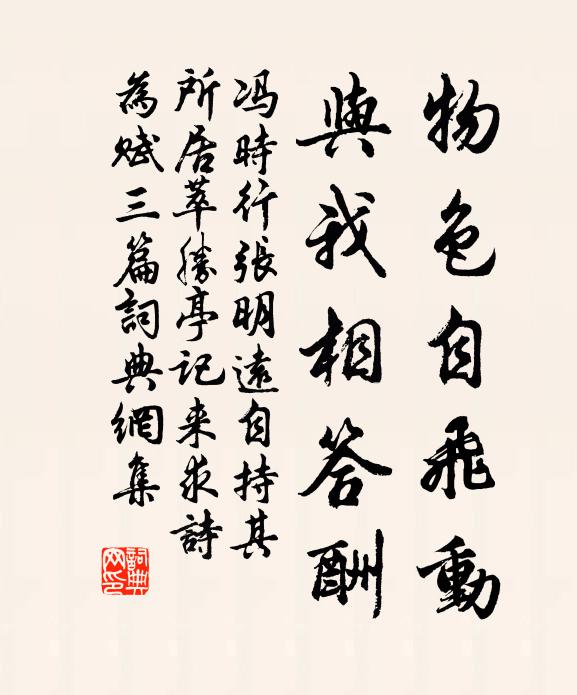 物色自飛動
與我相答酬
馮時行張明遠自持其
所居萃勝亭記来求詩
為賦三篇詞典網集
詞典网印